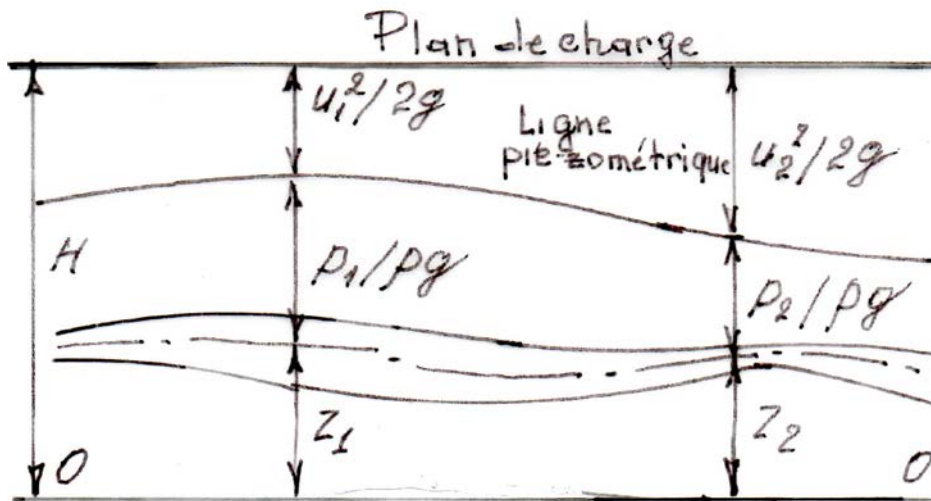 Plan de charge
u₁²/2g
Ligne
piézométrique
u₂²/2g
H
p₁/ρg
p₂/ρg
Z₁
Z₂
O
O